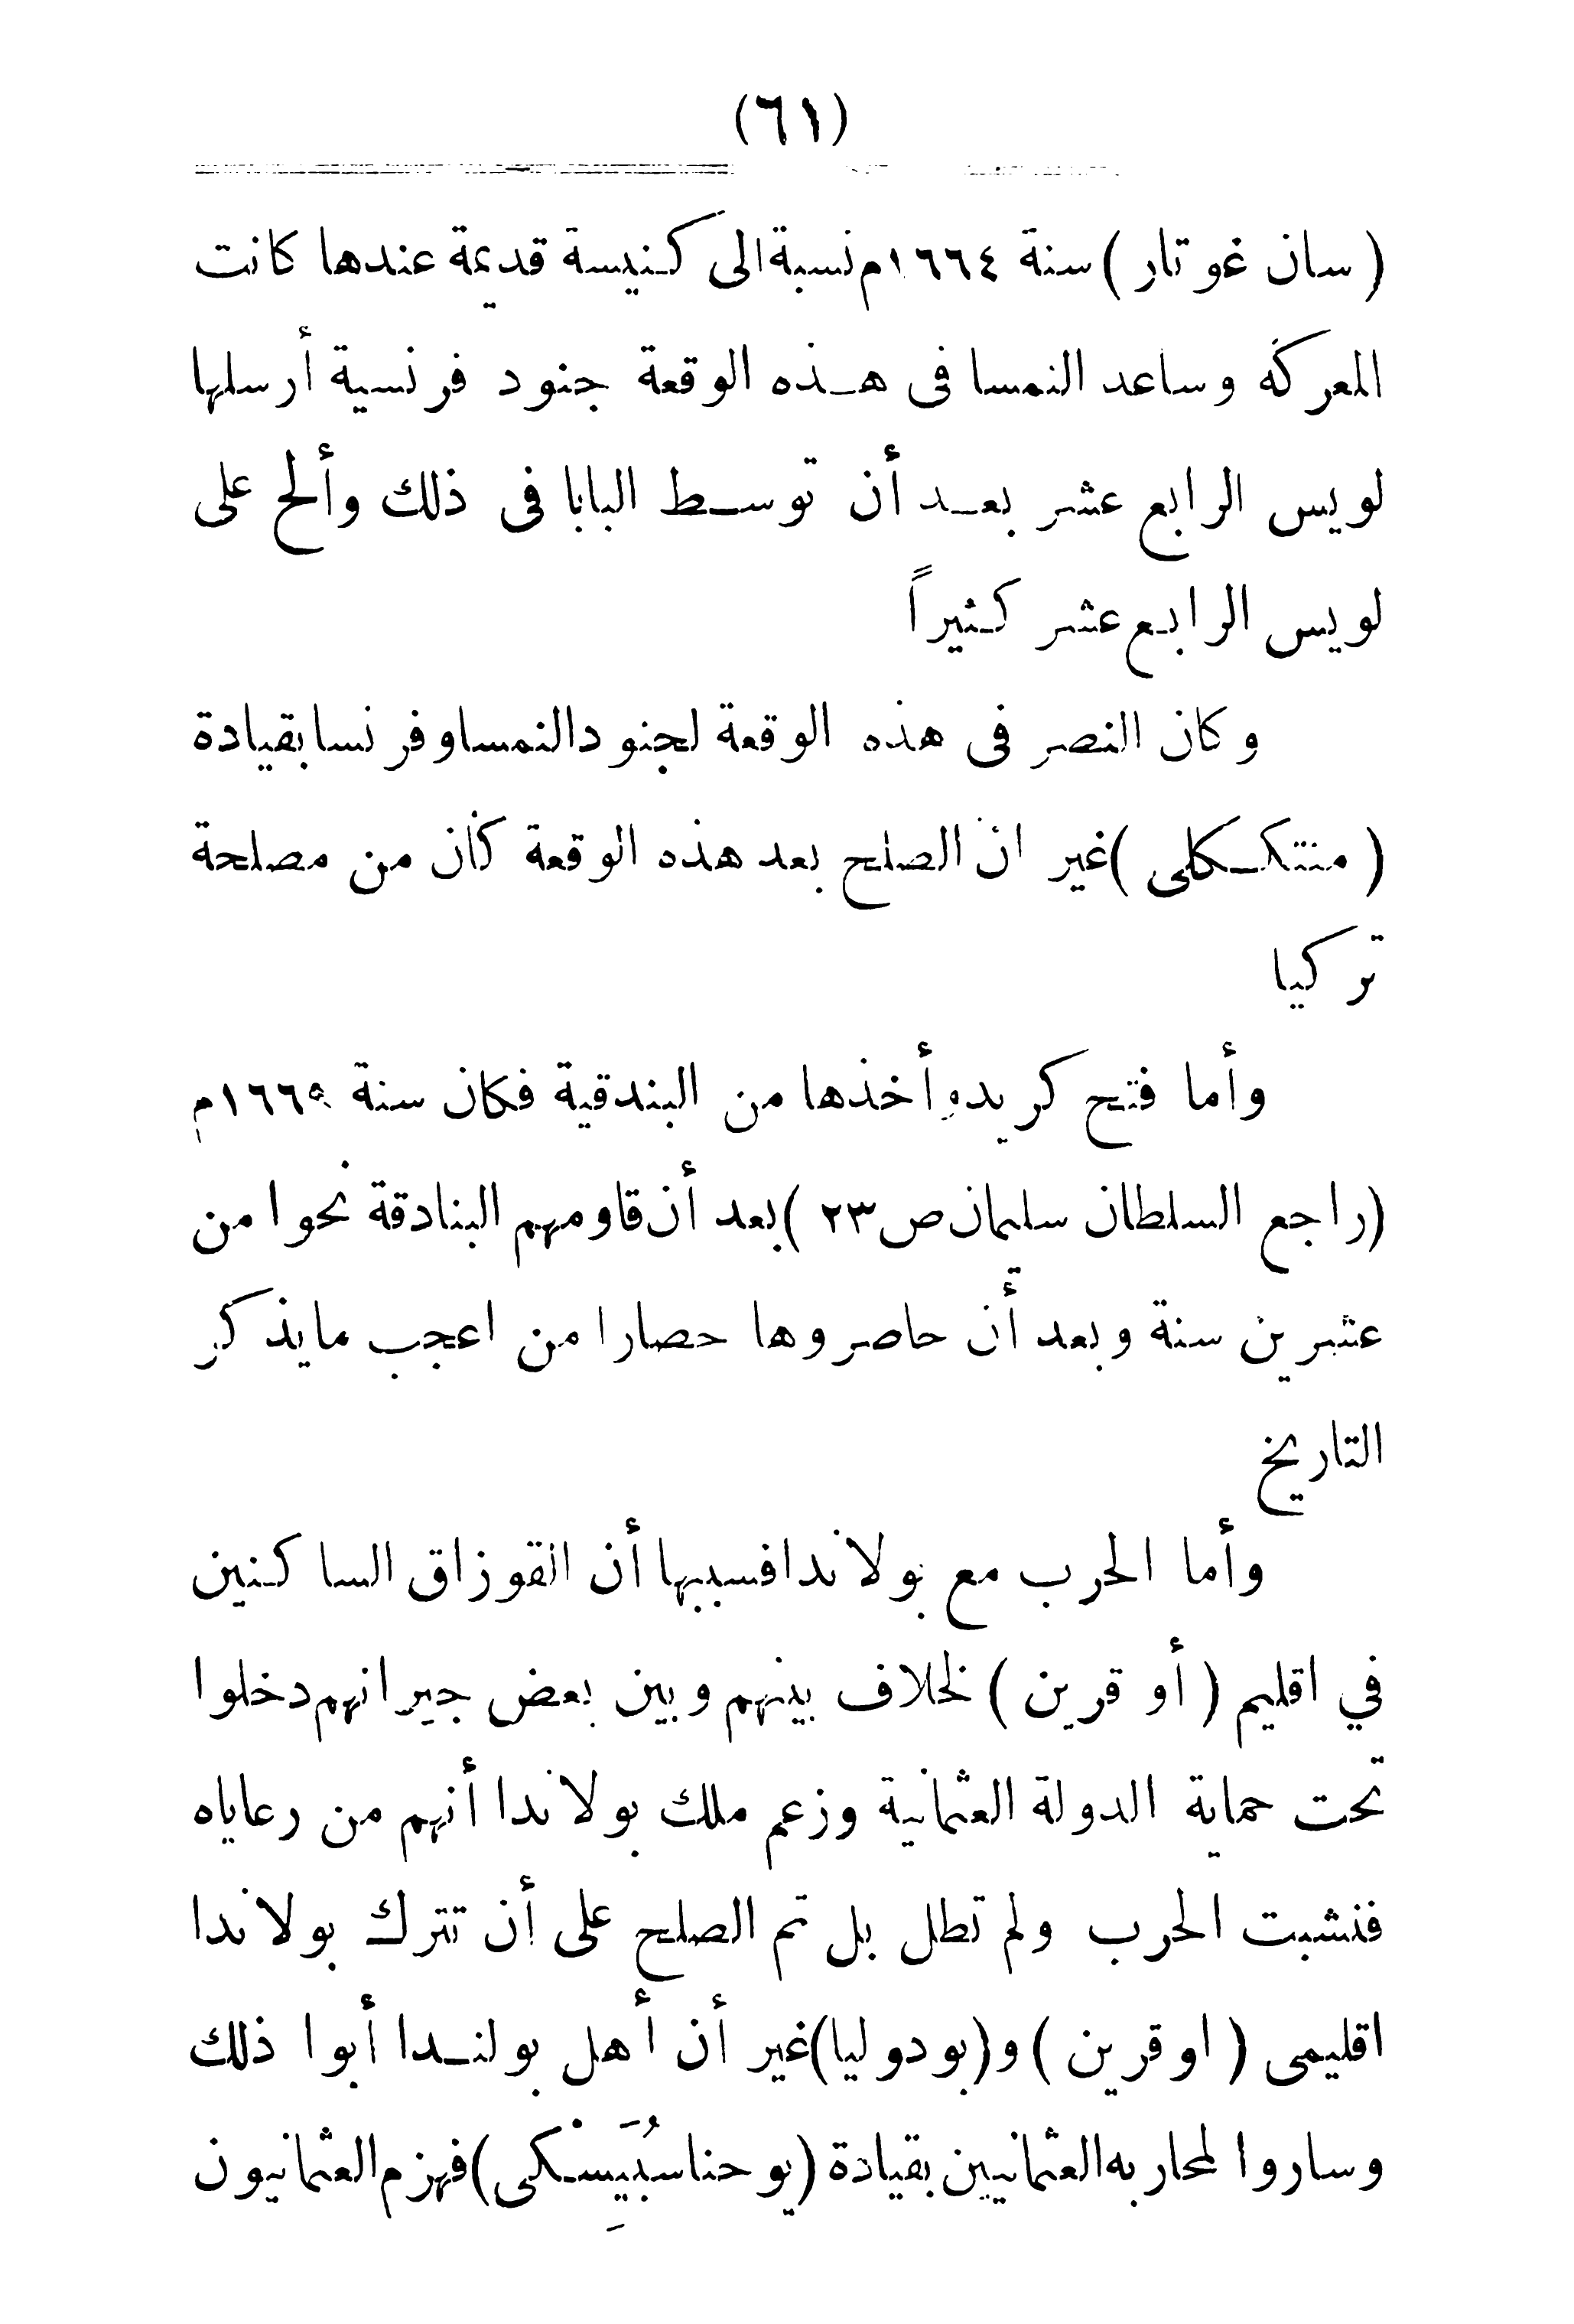 (٦١)
( سان غوتار ) سنة ١٦٦٤م نسبة الى كنيسة قديمة عندها كانت
المعركه وساعد النمسا فى هـذه الوقعة جنود فرنسية أرسلها
لويس الرابع عشر بعـد أن توسـط البابا فى ذلك وألح على
لويس الرابع عشر كثيراً
وكان النصر فى هذه الوقعة لجنود النمسا وفرنسا بقيادة
( منتكـكلى ) غير ان الصلح بعد هذه الوقعة كان من مصلحة
تركيا
وأما فتح كريد وأخذها من البندقية فكان سنة ١٦٦٩م
(راجع السلطان سليمان ص ٢٣ ) بعد أن قاومهم البنادقة نحوا من
عشرين سنة وبعد أن حاصروها حصارا من اعجب مايذكر
التاريخ
وأما الحرب مع بولاندا فسببها أن القوزاق الساكنين
في اقليم ( أوقرين ) لخلاف بينهم وبين بعض جيرانهم دخلوا
تحت حماية الدولة العثمانية وزعم ملك بولاندا أنهم من رعاياه
فنشبت الحرب ولم تطل بل تم الصلح على أن تترك بولاندا
اقليمى ( اوقرين ) و(بودوليا) غير أن أهل بولنـدا أبوا ذلك
وساروا لمحاربه العثمانيين بقيادة (يوحنا سُبَيَسْكى) فهزم العثمانيون